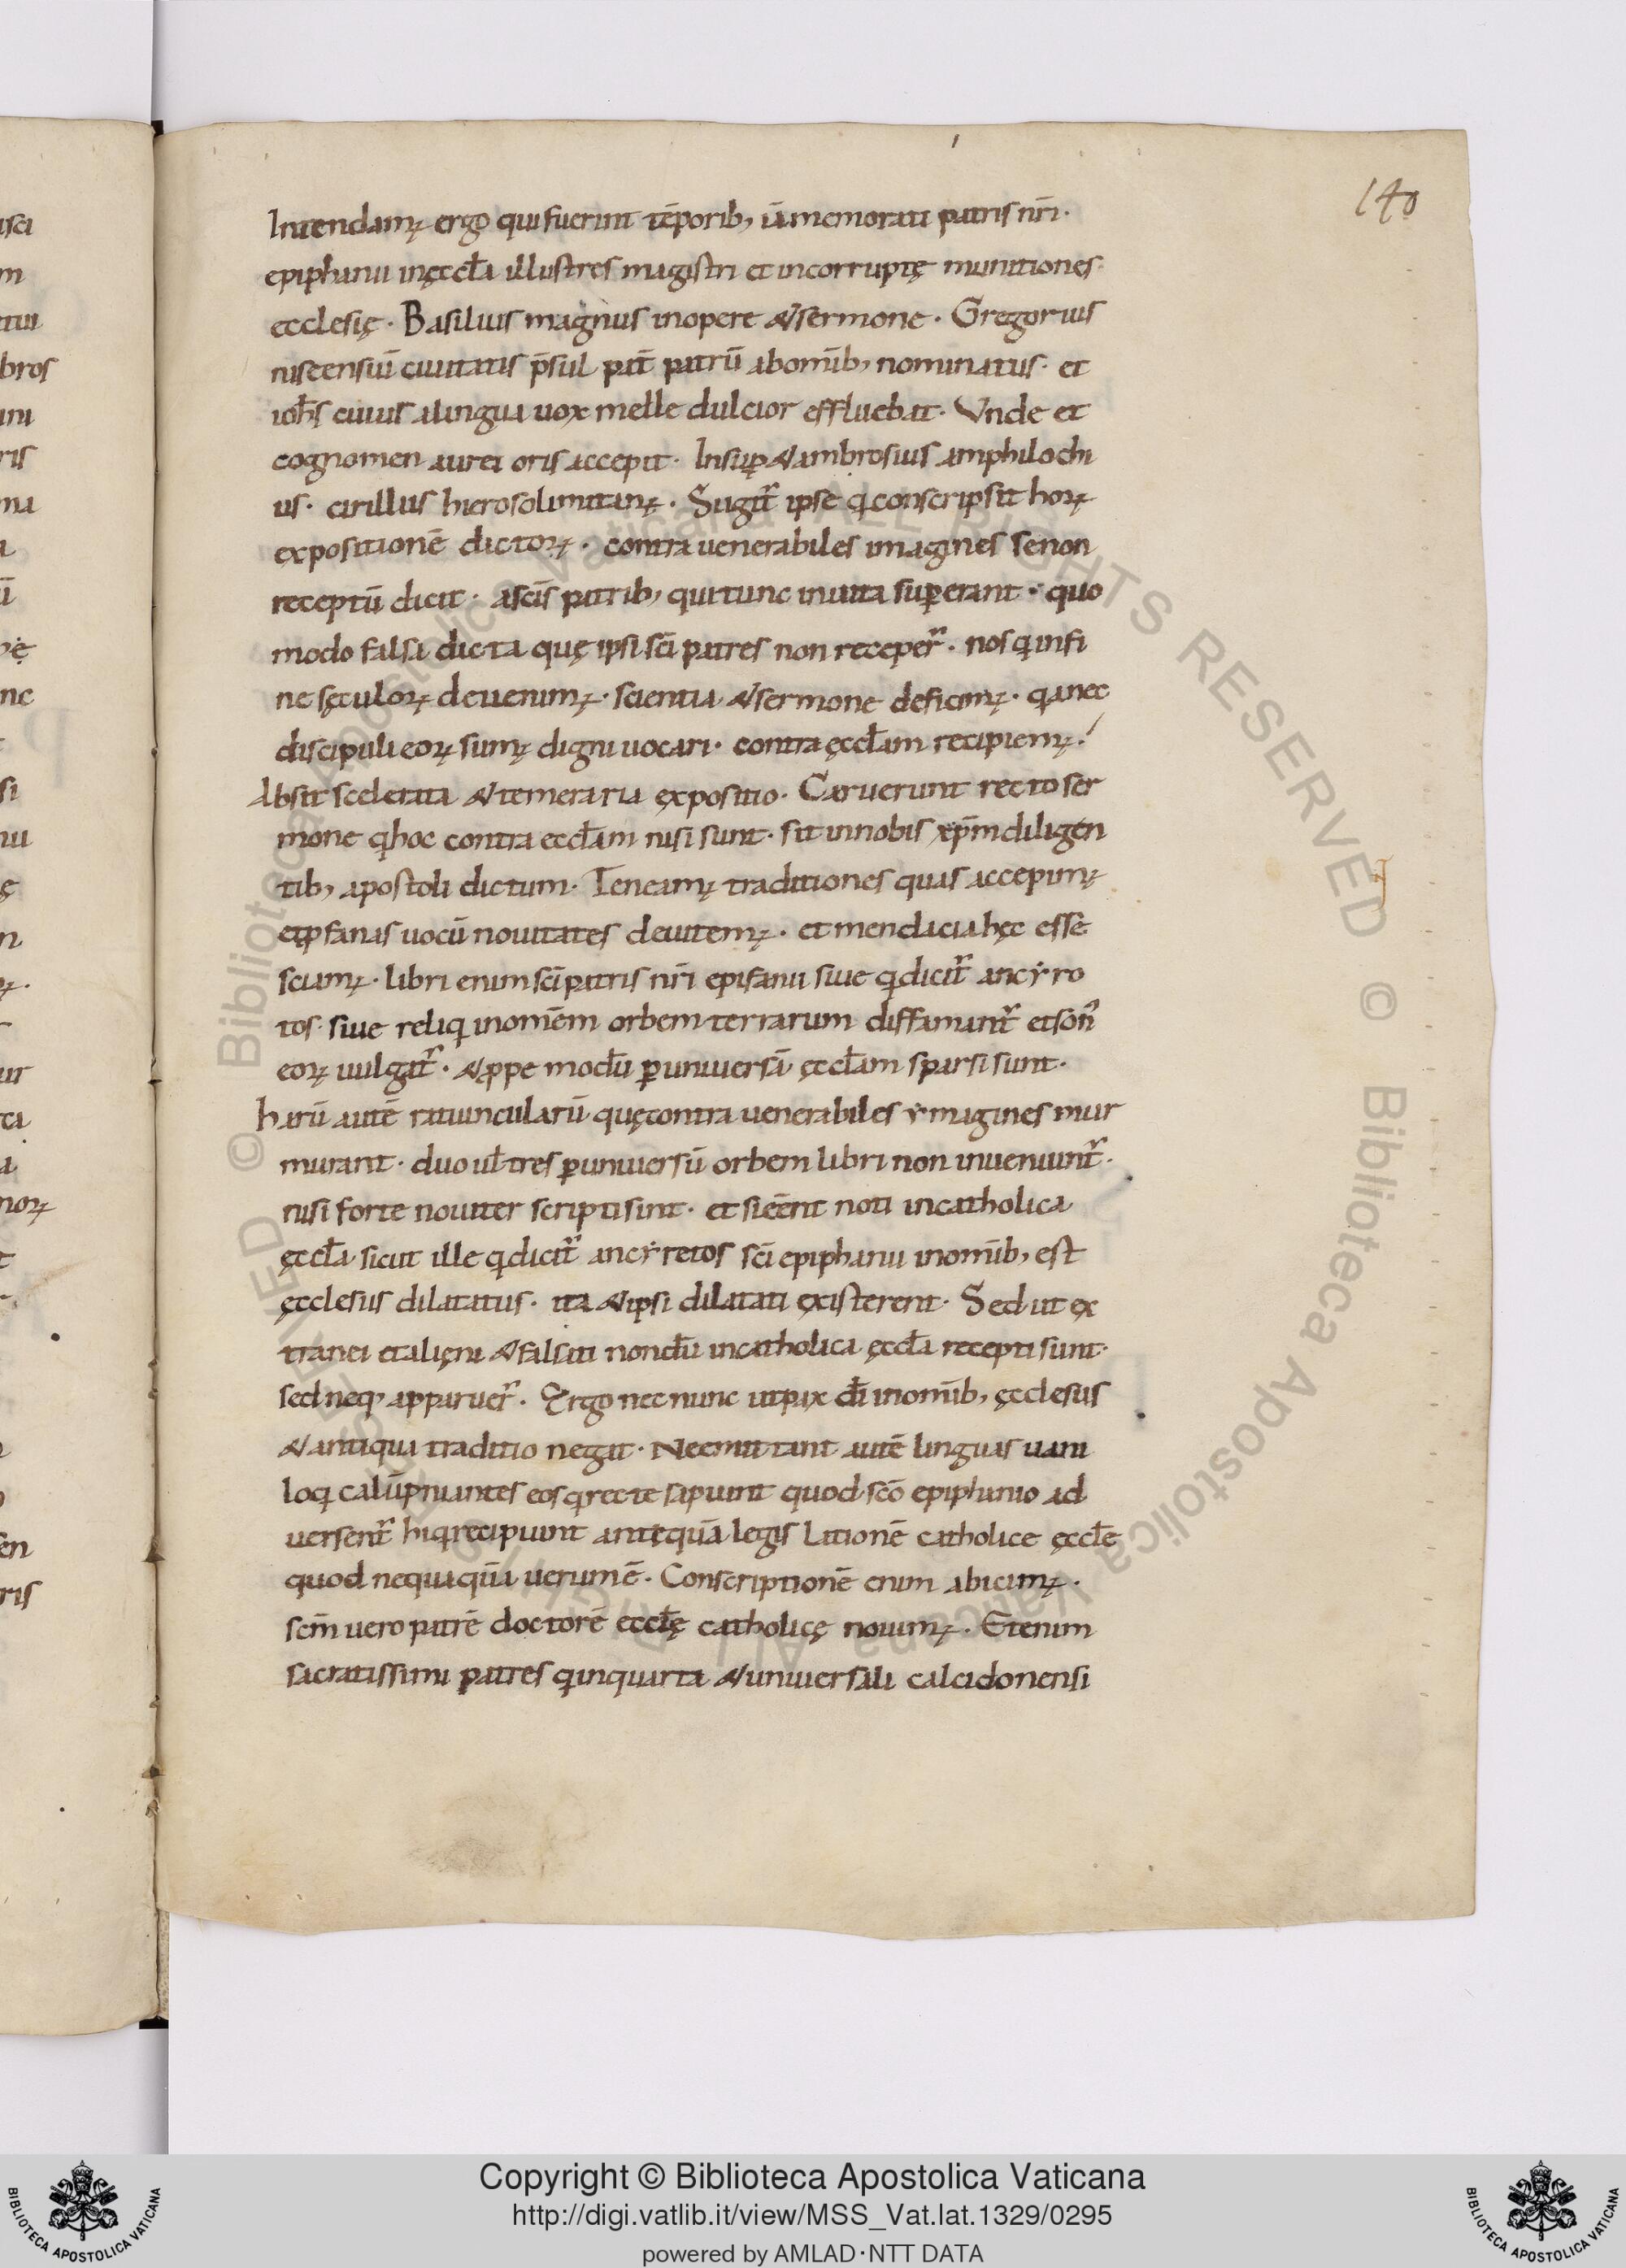 140
Intendamꝰ ergo qui fuerint tēporib, ū memorati patris nr̄i·
epiphanii in ęccl̄a illustres magistri et incorruptę munitiones·
ecclesię· Basilius magnus in opere & sermone· Gregorius
niscensiū ciuitatis p̄sul pat̄ patrū ab omīb, nominatus· et
ioh̄s cuius a lingua uox melle dulcior effluebat· Vnde et
cognomen aurei oris accepit· Insuꝑ & ambrosius amphilochi
us· cirillus hierosolimitanꝰ· Sugit̄ ipse qͥ conscripsit hoꝝ
expositionē dictoꝝ· contra uenerabiles imagines se non
receptū dicit· a sc̄is patrib, qui tunc in uita suꝑerant· quo
modo falsa dicta quę ipsi sc̄i patres non receper̄· nos qͥ in fi
ne sęculoꝝ deuenimꝰ· scientia & sermone deficimꝰ· qͥa nec
discipuli eoꝝ sumꝰ digni uocari· contra ęccl̄am recipiemꝰ·
Absit scelerata & temeraria expositio· Caruerunt recto ser
mone qͥ hoc contra eccl̄am nisi sunt· sit in nobis xp̄m diligen
tib, apostoli dictum· Teneamꝰ traditiones quas accepimꝰ
et ꝓfanas uocū nouitates deuitemꝰ· et mendacia hęc esse
sciamꝰ· libri enim sc̄i patris nr̄i epifanii siue qͥ dicit̄ ancyro
tos· siue reliqͥ in omēm orbem terrarum diffamant̄ et son̄
eoꝝ uulgat̄· & ꝓpe modū ꝑ uniuersā ęccl̄am sparsi sunt·
harū autē ratiuncularū quę contra uenerabiles ymagines mur
murant· duo ul̄ tres ꝑ uniuersū orbem libri non inueniunt̄·
nisi forte nouiter scripti sint· et si eēnt noti in catholica
ęccl̄a sicut ille qͥ dicit̄ ancyretos sc̄i epiphanii in omīb, est
ęcclesiis dilatatus· ita & ipsi dilatati existerent· Sed ut ex
tranei et aligeni & falsati nondū in catholica ęccl̄a recepti sunt·
sed neqꝫ apparuer̄· Ergo nec nunc ut pax dī in omīb, ęcclesiis
& antiqua traditio negat· Nec mittant autē linguas uani
loqͥ calūpniantes eos qͥ recte sapiunt quod sc̄o epiphanio ad
uersent̄ hi qͥ recipiunt ante quā legis lationē catholice ęccl̄e
quod nequaquā uerum ē· Conscriptionē enim abicimꝰ·
sc̄m uero patrē doctorē eccl̄ę catholicę nouimꝰ· Etenim
sacratissimi patres qͥ in quarta & uniuersali calcidonensi
Copyright © Biblioteca Apostolica Vaticana
http://digi.vatlib.it/view/MSS_Vat.lat.1329/0295
powered by AMLAD·NTT DATA